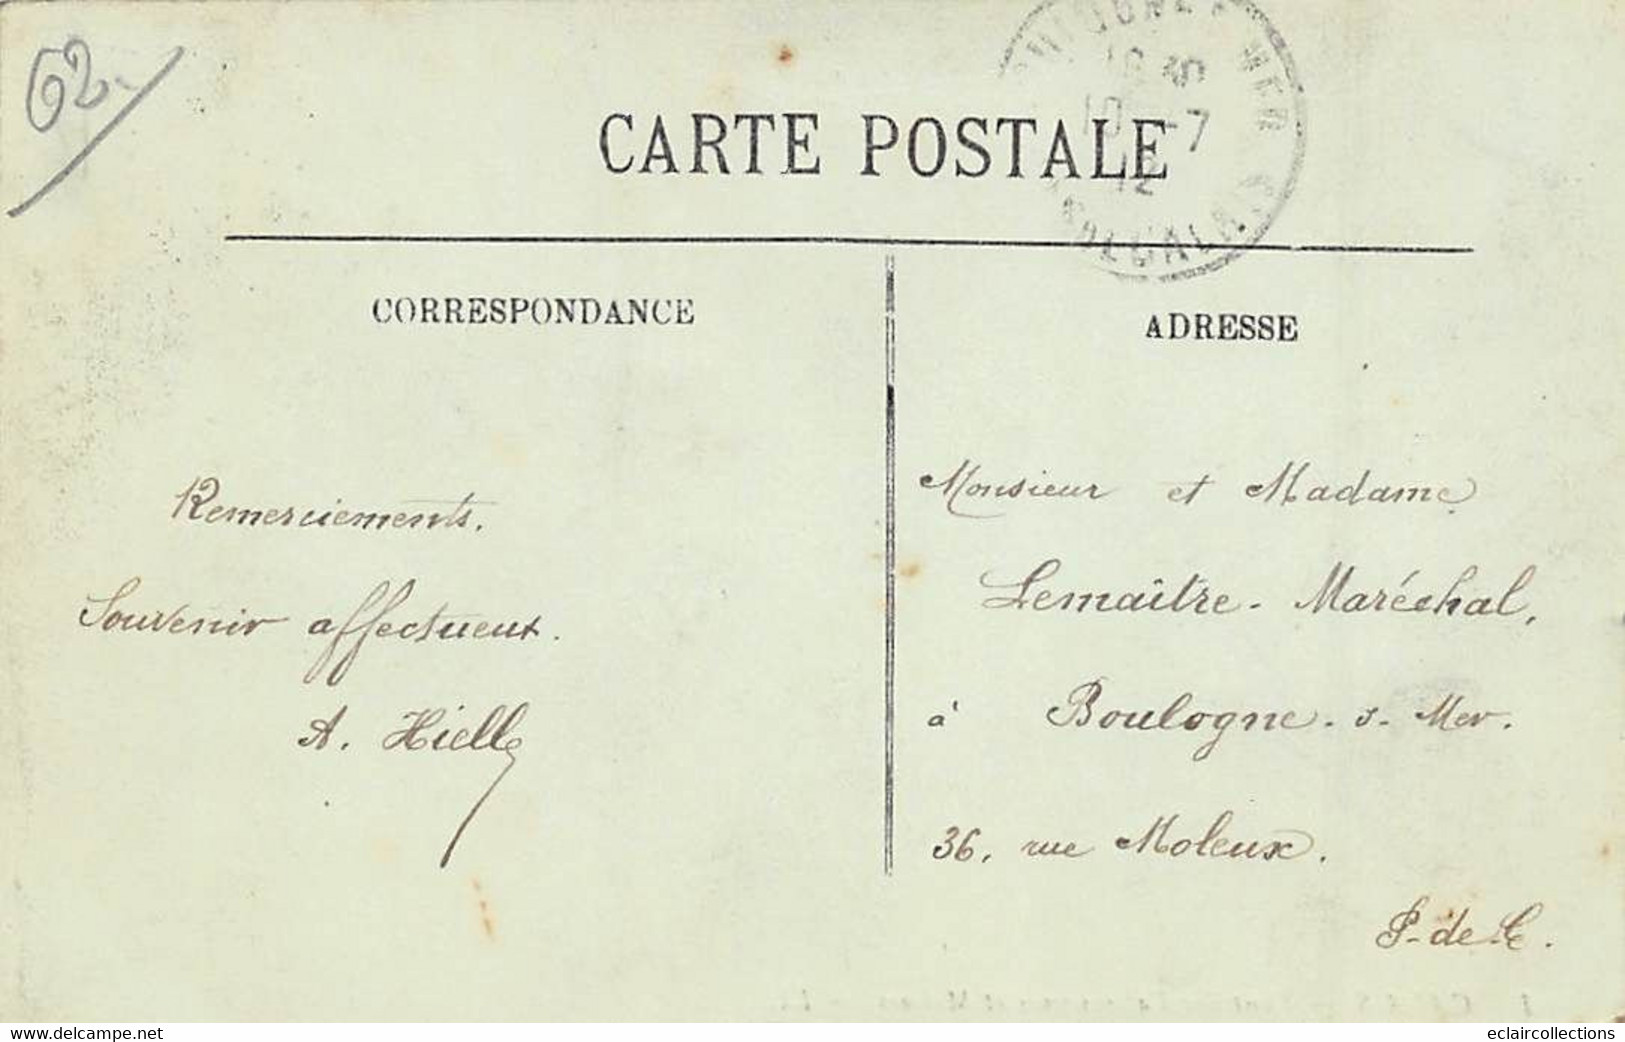 62.
CARTE POSTALE
10 -7
12
CORRESPONDANCE
ADRESSE
Remerciements.
Souvenir affectueux.
A. Hielle
Monsieur et Madame
Lemaître-Maréchal,
à Boulogne-s-Mer.
36, rue Moleux.
P-de-C.
delcampe.net
eclaircollections